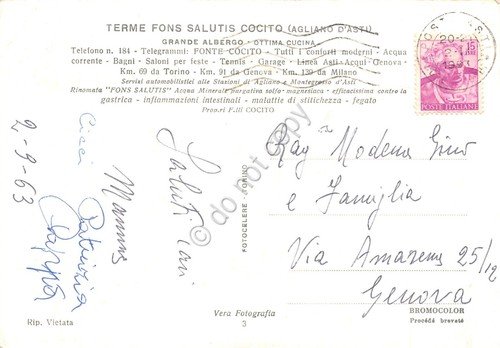 TERME FONS SALUTIS COCITO (AGLIANO D'ASTI)
GRANDE ALBERGO - OTTIMA CUCINA
Telefono n. 184 - Telegrammi: FONTE COCITO - Tutti i conforti moderni - Acqua
corrente - Bagni - Saloni per feste - Tennis - Garage - Linea Asti-Acqui-Genova
Km. 69 da Torino - Km. 91 da Genova - Km. 139 da Milano
Servizi automobilistici alle Stazioni di Agliano e Montegrosso d'Asti
Rinomata "FONS SALUTIS" Acqua Minerale purgativa solfo-magnesiaca - efficacissima contro la
gastrica - infiammazioni intestinali - malattie di stitichezza - fegato
Propri F.lli COCITO
15
POSTE ITALIANE
2-9-63
Ciao
Patrizia
Mamma
Pappà
Saluti cari
do not copy
Rag Modena Gino
e Famiglia
Via Amarena 25/12
Genova
Vera Fotografia
3
Rip. Vietata
BROMOCOLOR
Procédé breveté